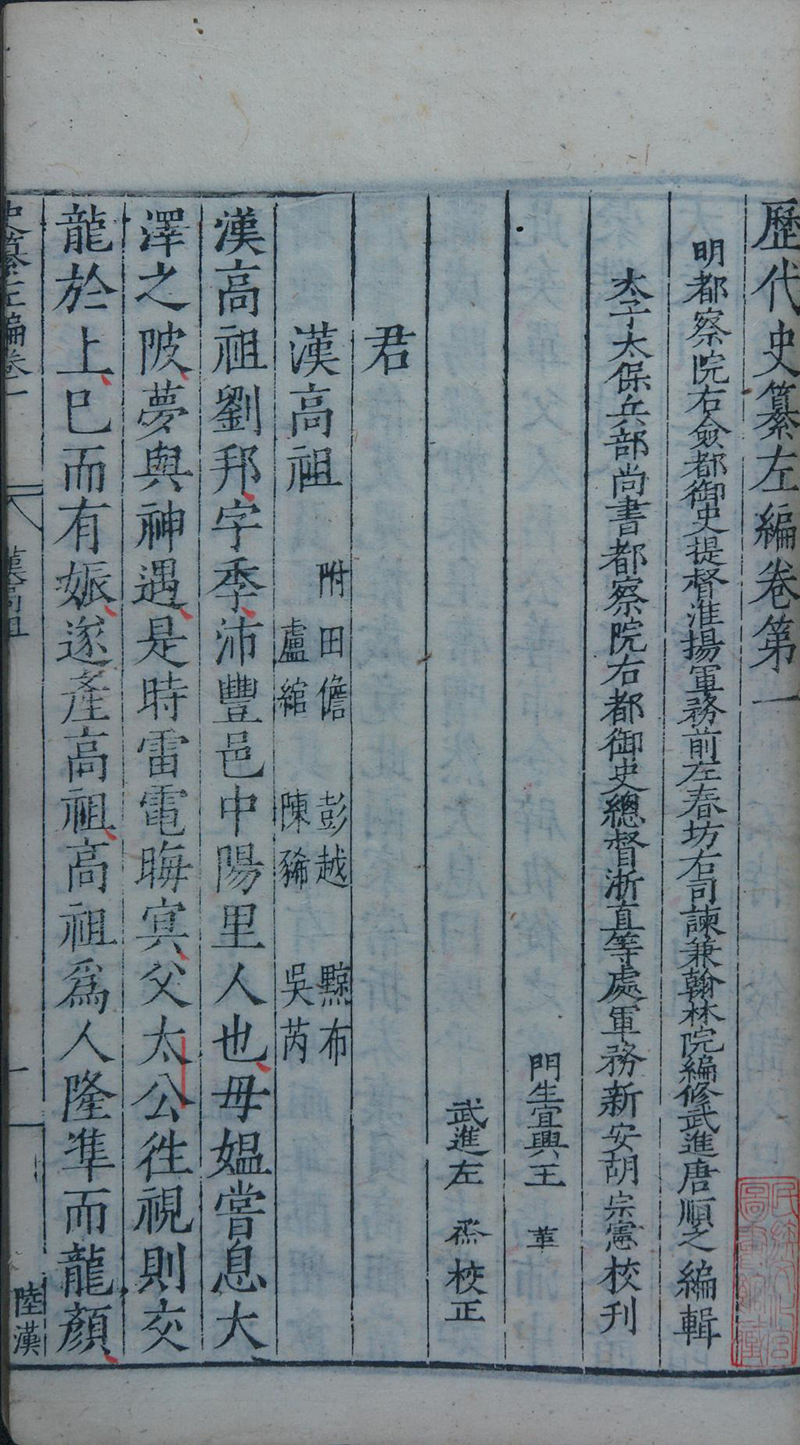 歷代史纂左編卷第一
明都察院右僉都御史提督淮揚軍務前左春坊右司諫兼翰林院編修武進唐順之編輯
太子太保兵部尚書都察院右都御史總督浙直等處軍務新安胡宗憲校刊
門生宜興王革
武進左烝校正
君
漢高祖
附田儋 彭越 黥布
盧綰 陳豨 吳芮
漢高祖劉邦字季沛豐邑中陽里人也母媪嘗息大
澤之陂夢與神遇是時雷電晦冥父太公往視則交
龍於上巳而有娠遂產高祖高祖爲人隆準而龍顏
史纂左編卷一
漢高祖
一
陸漢